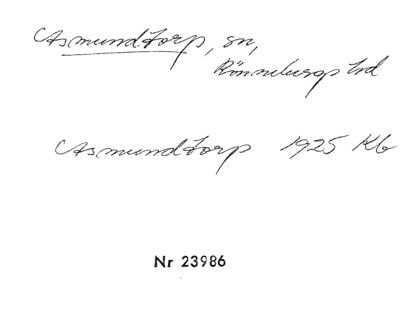 Asmundtorp, sn,
Rönnebergs hd
Asmundtorp 1925 Kb
Nr 23986